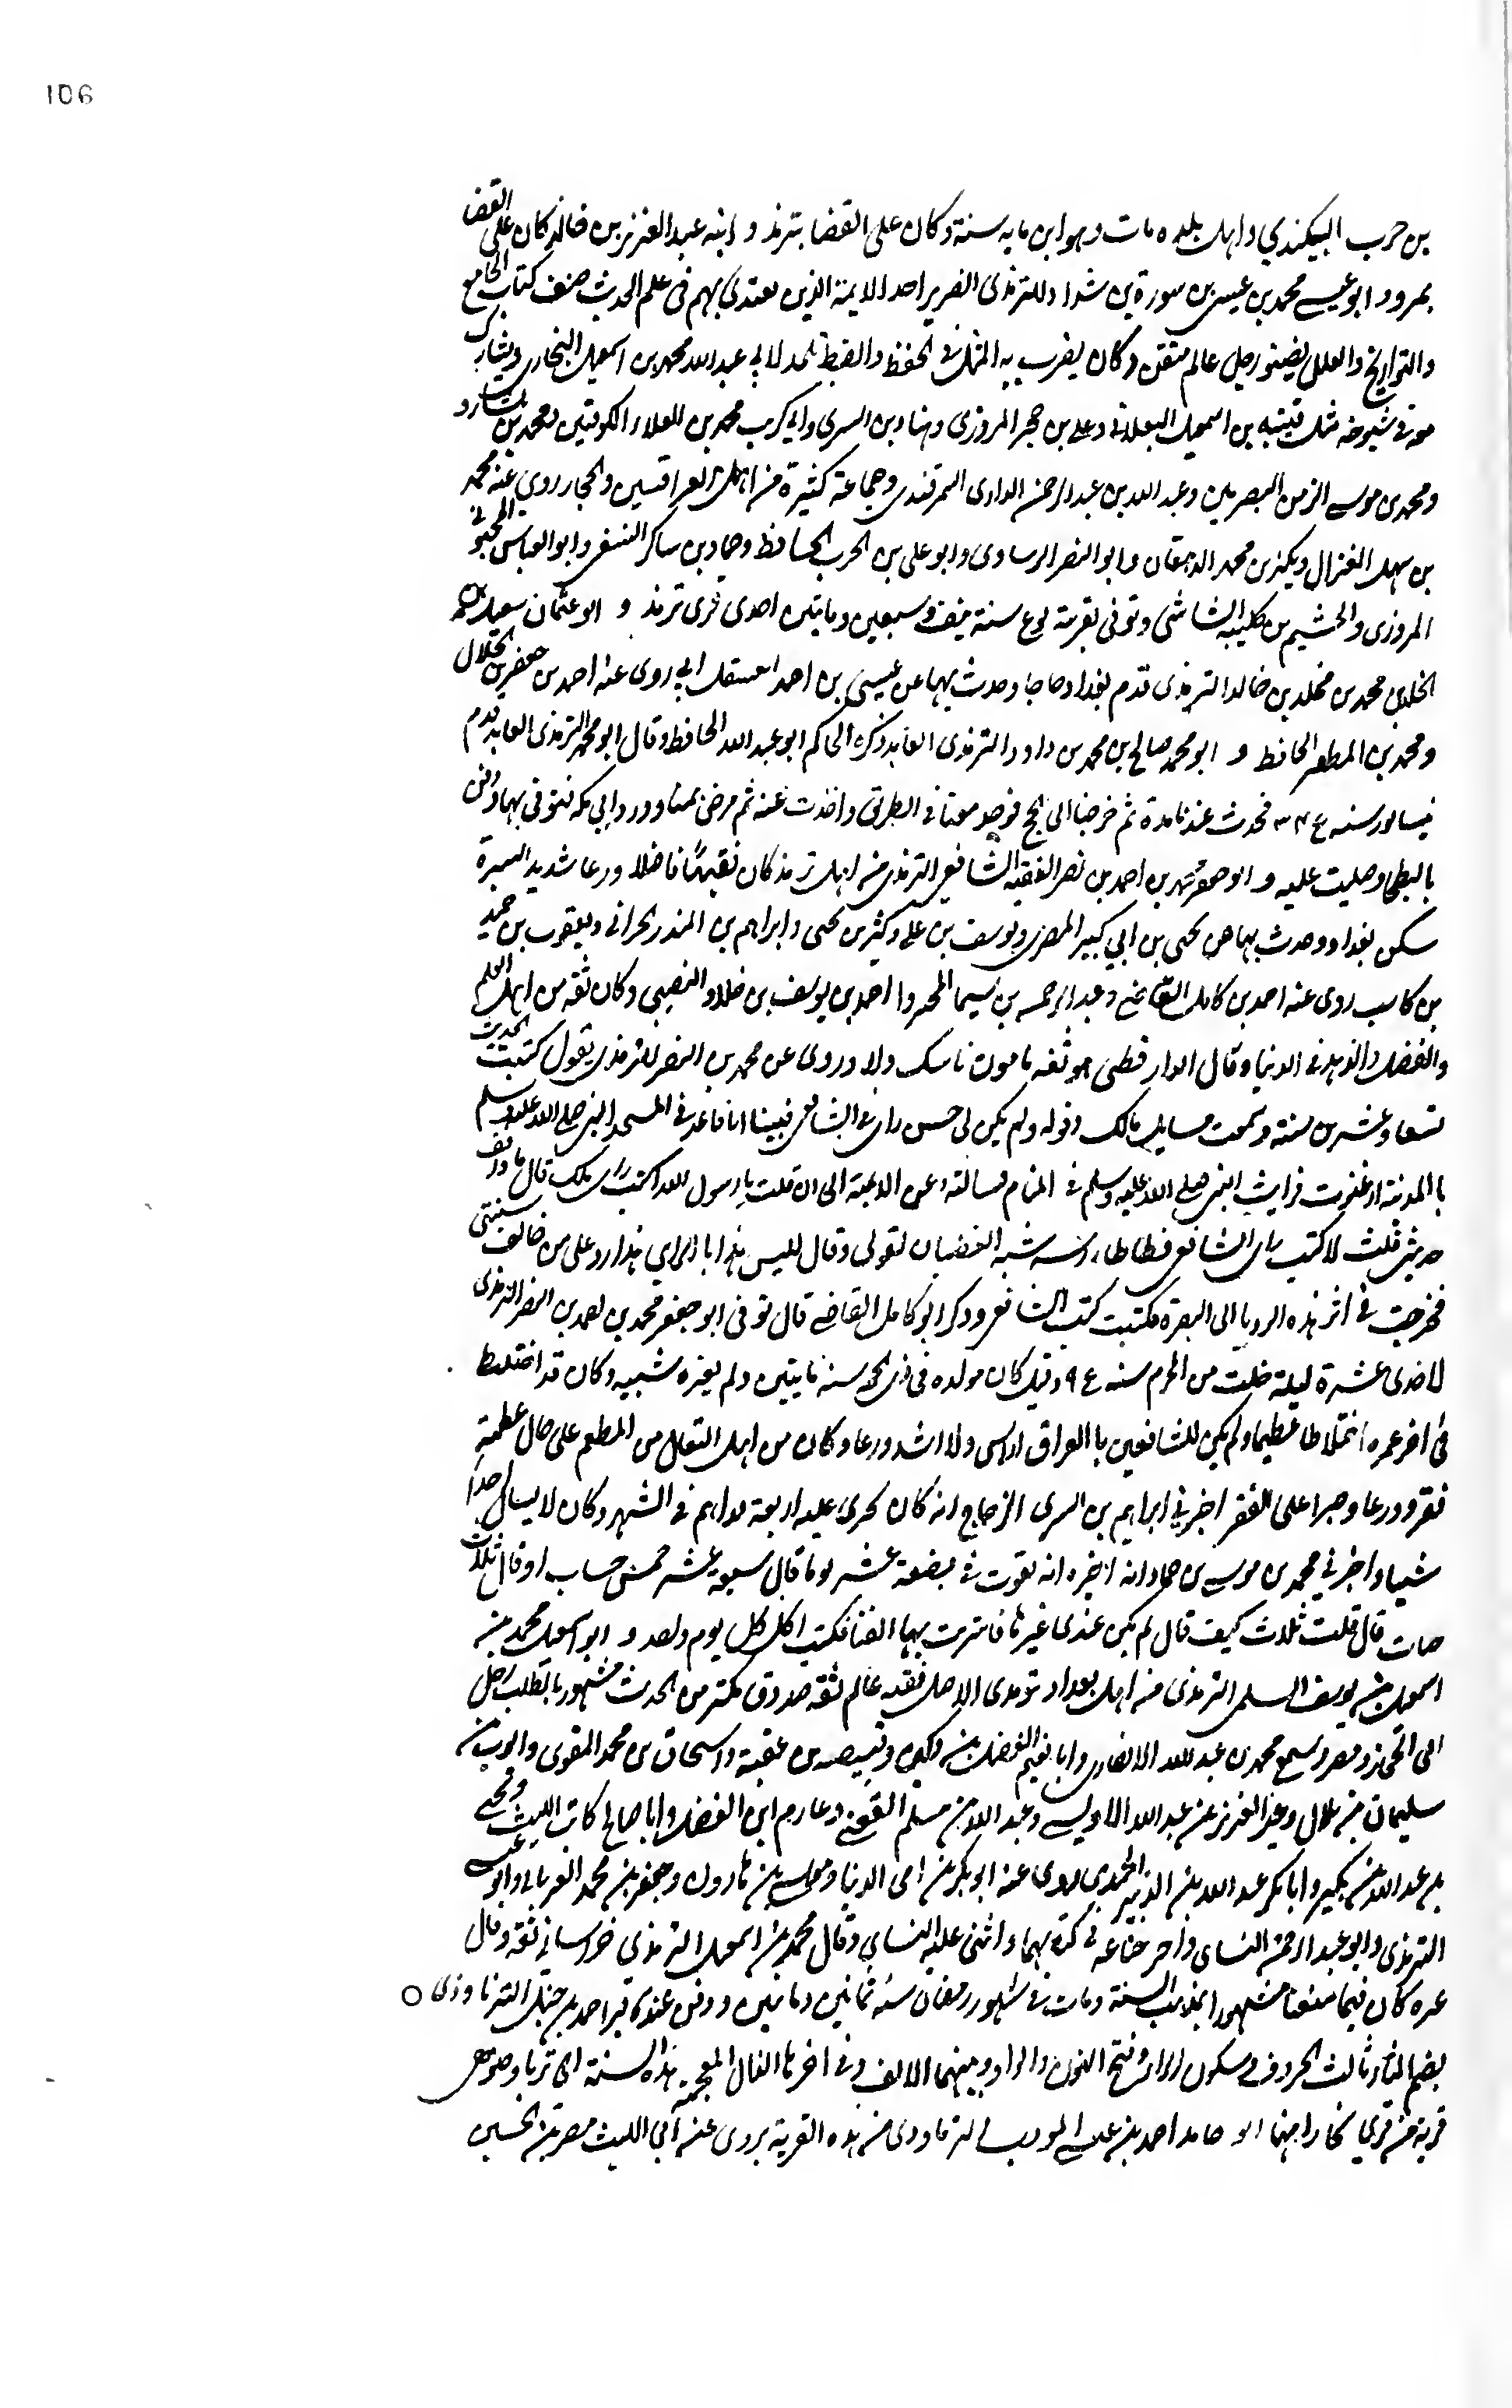 106
بن حرب البيكندي واهل بلده مات وهو ابن مايه سنة وكان على القضا بترمذ و ابنه عبد العزيز بن خالد كان على القضا
بمرو و ابو عيسى محمد بن عيسى بن سورة بن شداد الترمذى الضرير احد الايمة الذين يقتدى بهم فى علم الحديث صنف كتاب الجامع
والتواريخ والعلل تصنيف رجل عالم متقن وكان يضرب به المثل فى الحفظ والضبط تلمذ لابى عبد الله محمد بن اسمعيل البخارى ويشارك
معه فى شيوخه مثل قتيبة بن اسمعيل البغلانى وعلى بن حجر المروزى وهناد بن السرى وابى كريب محمد بن العلاء الكوفيين ومحمد بن بشار و
ومحمد بن موسى الزمن البصريين وعبد الله بن عبد الرحمن الدارى السمرقندى وجماعة كثيرة من اهل العراقيين والحجاز روى عنه محمد
بن سهل الغزال وبكر بن محمد الدهقان وابو النضر الرسادى وابو على بن الحرب الحافظ وحماد بن شاكر النسفى وابو العباس المحبوبى
المروزى والهشيم بن كليب الشاشى وتوفى بقرية بوغ سنة نيف وسبعين ومايتين احدى قرى ترمذ و ابو عثمان سعيد بن
محمد بن مخلد بن خالد الترمذى قدم بغداد حاجا وحدث بها عن عيسى بن احمد العسقلانى روى عنه احمد بن جعفر بن الخلال
ومحمد بن المظفر الحافظ و ابو محمد صالح بن محمد بن داود الترمذى العابد ذكره الحاكم ابو عبد الله الحافظ وقال ابو محمد الترمذى العابد قدم
نيسابور سنه فحدث عندنا مدة ثم خرجنا الى الحج فوجد معنا فى الطريق واخذت عنه ثم مرض بمنا وورد الى مكه فتوفى بها ودفن
بالبطحا وصليت عليه و ابو جعفر محمد بن احمد بن نصر الفقيه الشافعى الترمذى من اهل ترمذ كان فقيها فاضلا ورعا شديد السيرة
سكن بغداد وحدث بها عن يحيى بن ابي كبير المصرى ويوسف بن على وكثير بن يحيى وابراهيم بن المنذر الحزانى ويعقوب بن حميد
بن كاسب روى عنه احمد بن كامل القاضى وعبد الرحمن بن سيما المجبر واحمد بن يوسف بن خلاد النصيبى وكان ثقه من اهل العلم
والفضل والزهد فى الدنيا وقال الدارقطنى هو ثقه مامون ناسك ولا وروى عن محمد بن النضر الترمذى يقول كتبت الحديث
تسعا وعشرين سنة وسمعت مسايل مالك وقوله ولم يكن لى حسن راى فى الشافعى فبينا انا قاعد فى المسجد النبى صلى الله عليه وسلم
بالمدينة اذ غفوت فرايت النبى صلى الله عليه وسلم فى المنام فسالته عن الى ان قلت يا رسول الله اكتب راى ملك قال ما وافق
حديثى قلت لاكتب راى الشافعى فطاطا راسه شبه الغضبان لقولى وقال ليس هذا بالراي هذا رد على من خالف سنتى
فخرجت فى اثر هذه الرويا الى البصرة فكتبت كتب الشافعى وذكر ابو كامل القاضى قال توفى ابو جعفر محمد بن احمد بن النضر الترمذى
لاحدى عشرة ليلة خلت من المحرم سنه وقيل كان مولده فى ذى الحجه سنه مايتين ولم يغيره شيبه وكان قد اختلط
فى اخر عمره اختلاطا عظيما ولم يكن للشافعيين بالعراق اراس ولا اشد ورعا وكان من اهل التقلل من المطعم على حال عظيمة
فقر وورعا وصبرا على الفقر اخبرنى ابراهيم بن السرى الزجاج انه كان يجرى عليه اربعة دراهم فى الشهر وكان لا يسال احدا
شيا واخبرنى محمد بن موسى بن حماد انه اخبره انه تقوت فى بضعة عشر يوما قال سبعة عشر خمس حساب او قال ثلاث
حبات قال قلت ثلاث كيف قال لم يكن عندى غيرها فاشتريت بها الفتا فكنت اكل كل يوم واحد و ابو اسمعيل محمد بن
اسمعيل بن يوسف السلمى الترمذى من اهل بغداد ترمذى الاصل فقيه عالم ثقه صدوق مكثر من الحديث مشهور بالطلب رحل
الى الحجاز ومصر وسمع محمد بن عبد الله الانصارى وابا نعيم الفضل بن دكين وقبيصه بن عقبة واسحاق بن محمد الفروى وايوب بن
سليمان بن بلال وعبد العزيز بن عبد الله الاويسى وعبد الله بن مسلم القعنبى وعارم ابن الفضل وابا صالح كاتب الليث ويحيى
بن عبد الله بن بكير وابا بكر عبد الله بن الزبير الحميدى روى عنه ابو بكر بن ابى الدنيا وموسى بن هارون وجعفر بن محمد الفريابى وابو عيسى
الترمذى وابو عبد الرحمن النساى واخر جماعة فى كتابهما واثنى عليه النساى وقال محمد بن اسمعيل الترمذى خراسانى ثقه وقال
غيره كان فهما متقنا مشهورا بمذهب السنة ومات فى شهور رمضان سنة ثمانين ومايتين ودفن عند قبر احمد بن حنبل الترناوذى ○
بضم التاء ثالث الحروف وسكون الراء وفتح النون والواو وبينهما الالف وفى اخرها الذال المعجمة هذه النسبة الى ترناوذ وهى
قرية من قرى بخارا منها ابو حامد احمد بن عيسى المودب الترناوذى من هذه القرية يروى عن ابى الليث نصر بن الحسين